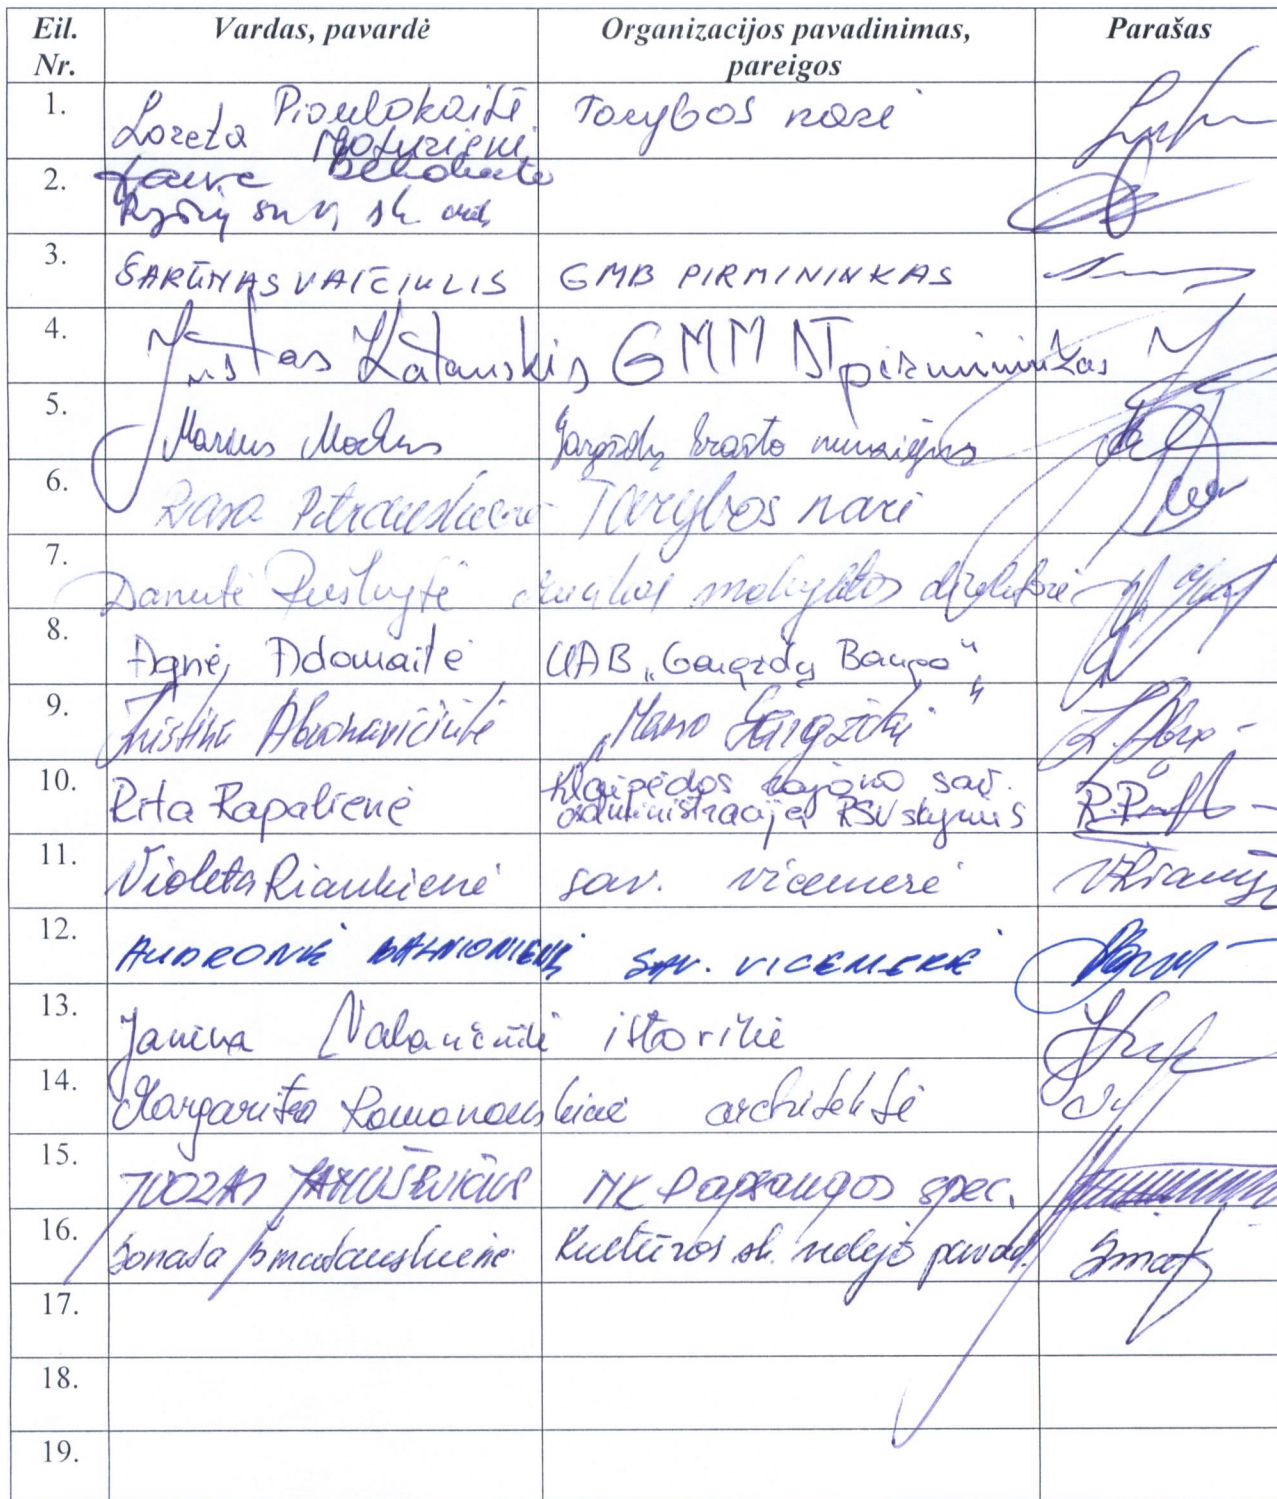 Eil. Nr. Vardas, pavardė Organizacijos pavadinimas, pareigos Parašas
1. Loreta Piaulokaitė Motuzienė Tarybos narė
2.
3. ŠARŪNAS VAIČIULIS GMB PIRMININKAS
4. Justas Katauskis GMM NT pirmininkas
5. Marius Mockus Gargždų krašto muziejus
6. Rasa Petrauskienė Tarybos narė
7. Danutė mokyklos direktorė
8. Agnė Adomaitė UAB „Gargždų Banga"
9. Kristina Abromavičiūtė „Mano Gargždai"
10. Rita Rapalienė Klaipėdos rajono sav. administracija RSV skyrius
11. Violeta Riaukienė sav. vicemerė
12. AUDRONĖ BALNIONIENĖ SAV. VICEMERĖ
13. Janina Valančiūtė istorikė
14. Margarita Romanauskienė architektė
15. JUOZAS JANUŠEVIČIUS MK Papsaugos spec.
16. Sonata Šmatauskienė Kultūros sk. vedėjo pavad.
17.
18.
19.